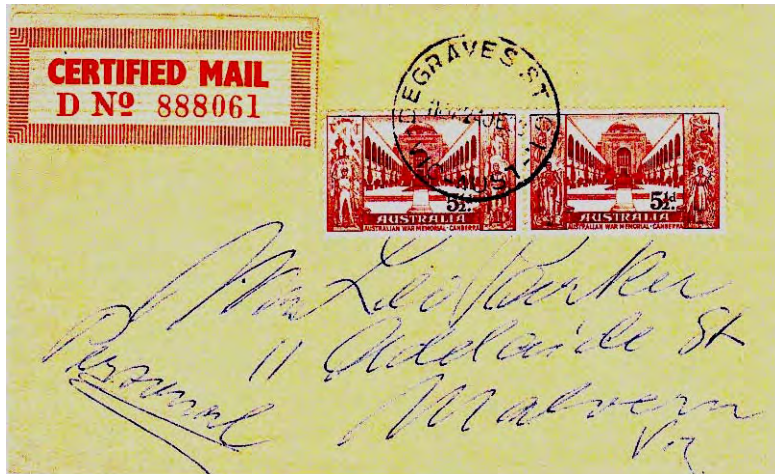 CERTIFIED MAIL
D Nº 888061
DEGRAVES ST
AUST
5½d.
AUSTRALIA
AUSTRALIAN WAR MEMORIAL - CANBERRA
5½d
AUSTRALIA
AUSTRALIAN WAR MEMORIAL - CANBERRA
Leo
11 Adelaide St
Malvern
Vic
Personal